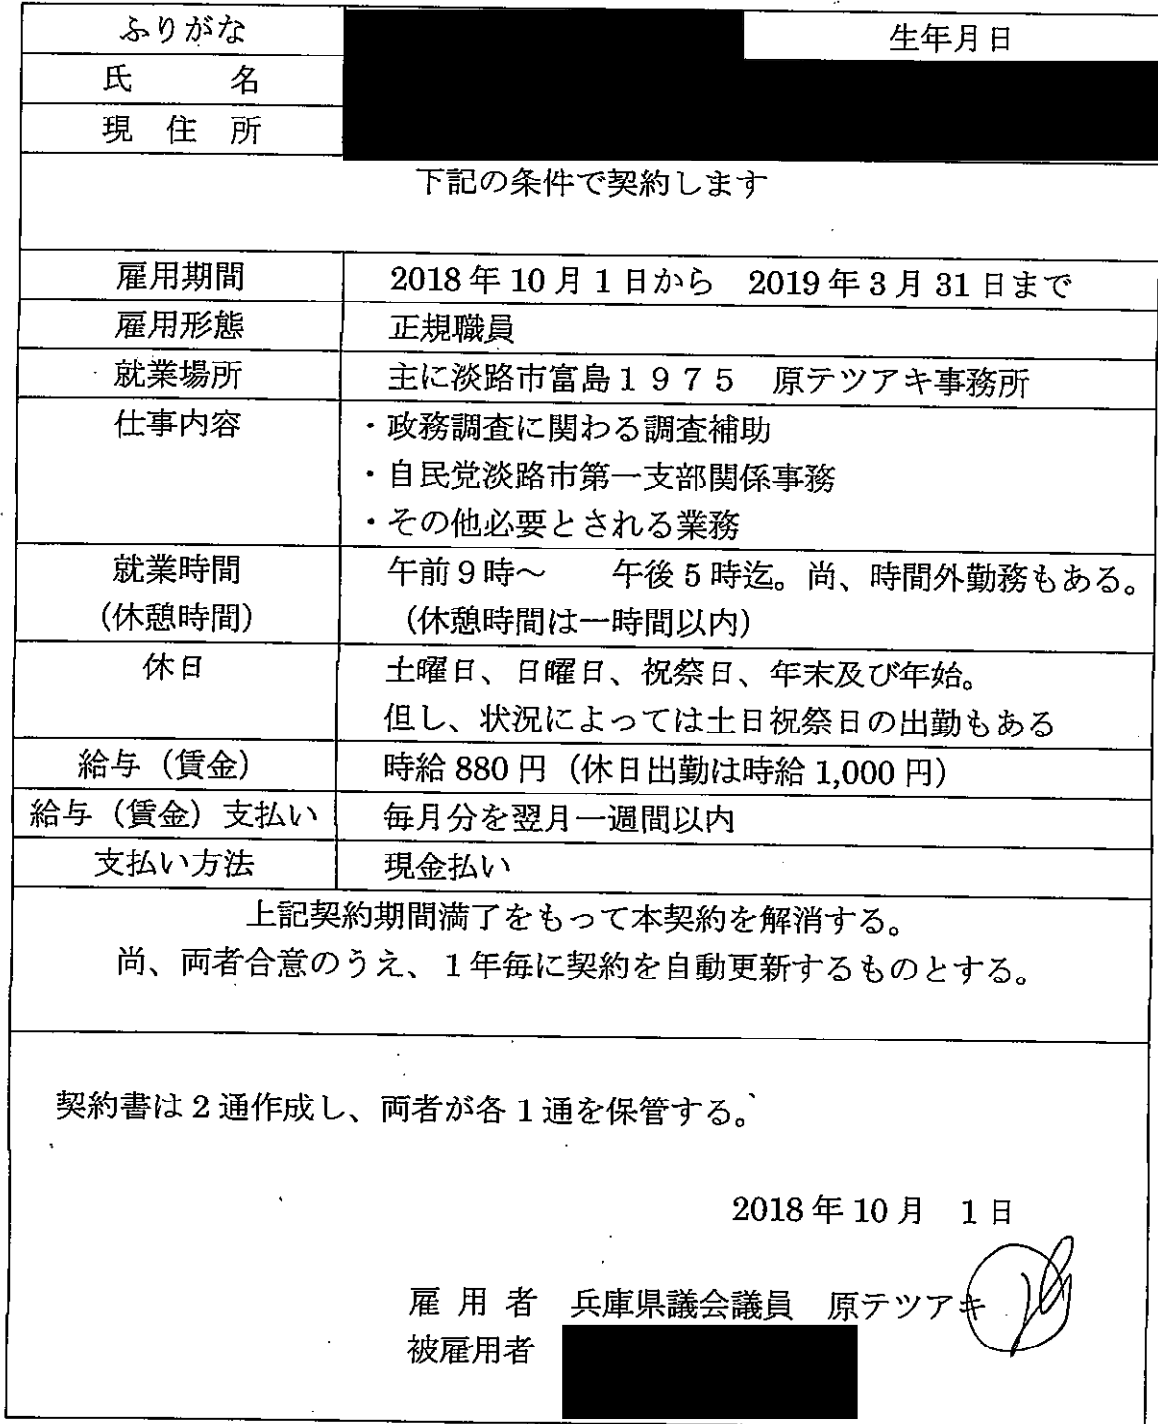 ふりがな
生年月日
氏 名
現 住 所
下記の条件で契約します
雇用期間 2018年10月1日から 2019年3月31日まで
雇用形態 正規職員
就業場所 主に淡路市富島1975 原テツアキ事務所
仕事内容 ・政務調査に関わる調査補助
・自民党淡路市第一支部関係事務
・その他必要とされる業務
就業時間 午前9時～ 午後5時迄。尚、時間外勤務もある。
(休憩時間) (休憩時間は一時間以内)
休日 土曜日、日曜日、祝祭日、年末及び年始。
但し、状況によっては土日祝祭日の出勤もある
給与(賃金) 時給880円(休日出勤は時給1,000円)
給与(賃金)支払い 毎月分を翌月一週間以内
支払い方法 現金払い
上記契約期間満了をもって本契約を解消する。
尚、両者合意のうえ、1年毎に契約を自動更新するものとする。
契約書は2通作成し、両者が各1通を保管する。
2018年10月 1日
雇 用 者 兵庫県議会議員 原テツアキ
被雇用者